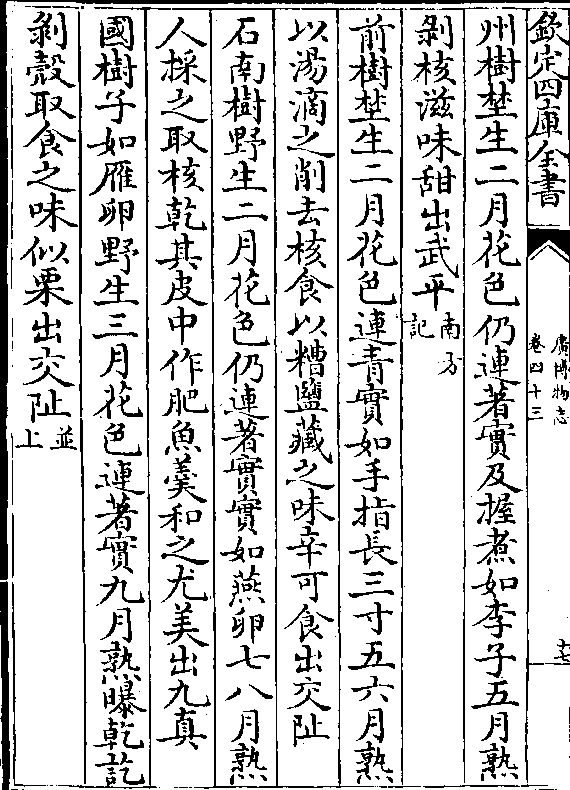 欽定四庫全書
廣博物志
卷四十三
十七
州樹埜生二月花色仍連著實及握煮如李子五月熟
剝核滋味甜出武平南方記
前樹埜生二月花色連青實如手指長三寸五六月熟
以湯滴之削去核食以糟鹽藏之味辛可食出交阯
石南樹野生二月花色仍連著實實如燕卵七八月熟
人採之取核乾其皮中作肥魚羹和之尤美出九真
國樹子如雁卵野生三月花色連著實九月熟曝乾訖
剝殼取食之味似栗出交阯並上